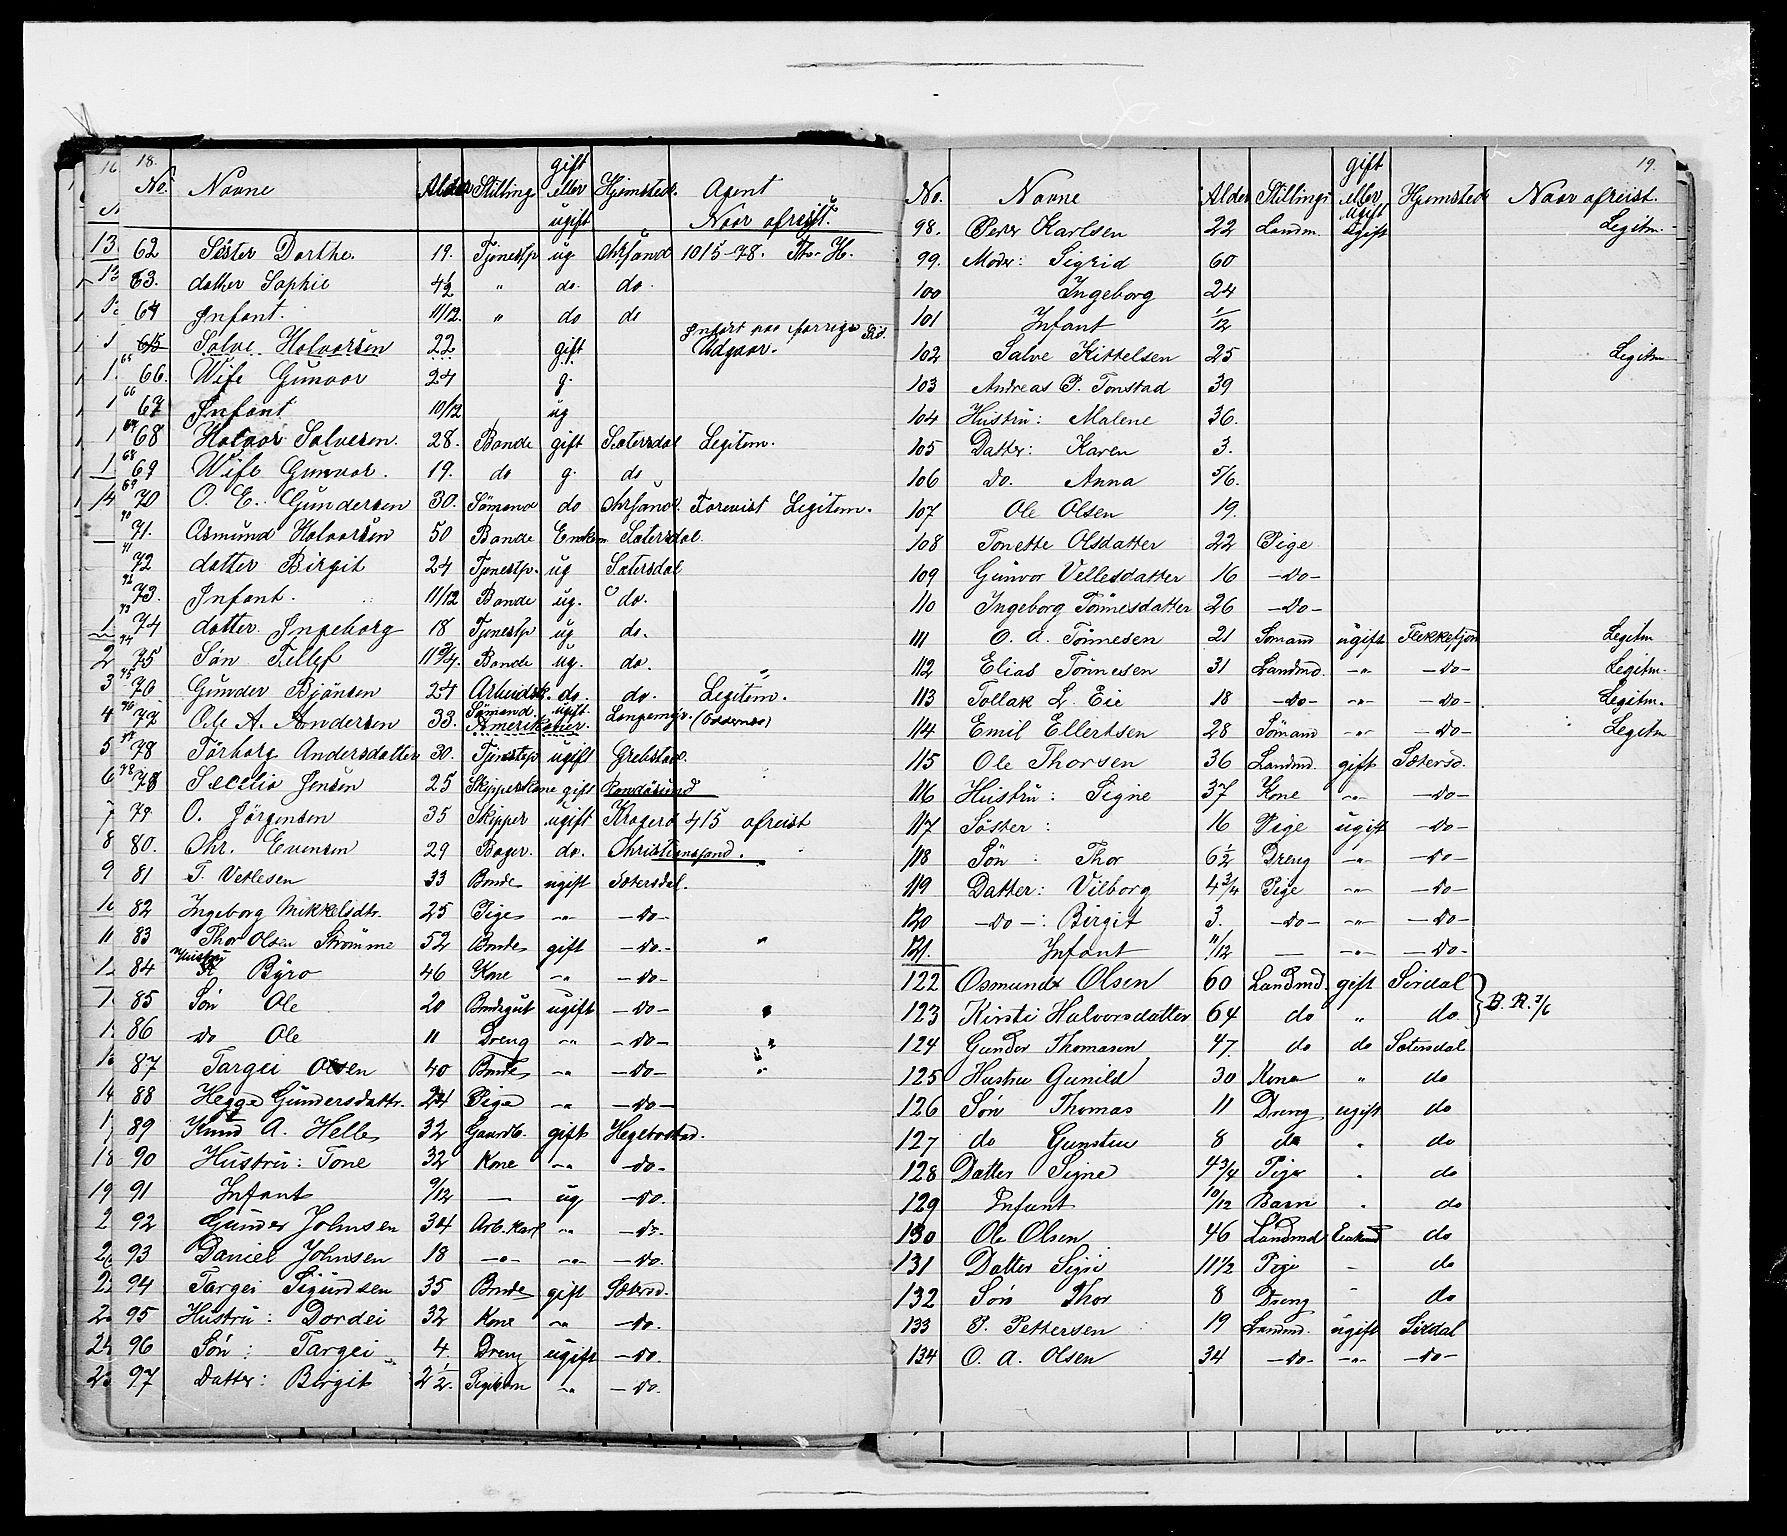 18.
No. Navne Alder Stilling gift eller ugift Hjemsted. Agent Naar afreist.
62 Söster Dorthe. 19. Tjenestp ug. Chrsand 1015-78. Thr. H.
63. datter Sophie 4½ " do. do.
64 Infant. 11/12. " do do
65 Salve Halvorsen 22. gift Infört paa forrige Sid. Udgaar.
65 66. Wife Gunvor 24 g.
66 67 Infant 10/12 ug
67 68 Halvor Salvesen. 28. Bonde gift Sætersdal Legitem.
68 69 Wife Gunvor. 19. do g. do
69 70 O. E. Gundersen 30. Sömand do Chrsand. Forevist Legitem.
70 71. Asmund Halvorsen 50 Bonde Enkem. Satersdal.
71 72 datter Birgit 24 Tjenestp. ug Satersdal
72 73. Infant. 11/12 Bonde ug. do.
73 74 datter. Ingeborg 18 Tjenestp ug do.
74 75 Sön Tellef 11 3/4. Bonde ug. do.
75 76 Gunder Bjönsen 24 Arbeidsk. do. do. Legitem.
76 77 Ole A. Andersen 33. Sömand Amerikaner. ugift. Langemyr. (Oddernes)
77 78 Törborg Andersdatter 30. Tjenestp ugift Grebstad.
78 78 Secelia Jensen 25 Skipperskone gift Randösund
79. O. Jörgensen 35 Skipper ugift Kragerö 415 afreist
80. Chr. Evensen 29 Bager. do. Christiansand.
81 T. Vetlesen 33 Bonde ugift Sætersdal.
82 Ingeborg Mikkelsdtr. 25 Pige -"- -Do-
83 Thor Olsen Strömme 52 Bonde gift -Do- "
84 Hustru Byro 46 Kone -"- -Do-
85 Sön Ole 20 Bondegut ugift -Do- "
86 do Ole 11 Dreng -"- -Do- "
87 Targei Olsen 40 Bonde -"- -Do- "
88 Hegge Gundersdattr. 24 Pige -"- -Do-
89 Knud A. Helle 32 Gaardb. gift Hegebostad.
90 Hustru: Tone 32 Kone -"- -Do-
91 Infant 9/12 — ug -Do.
92 Gunder Johnsen 34 Arb. karl -"- -Do.
93 Daniel Johnsen 18 -"- -"- -Do.
94 Targei Sigurdsen 35 Bonde gift Sætersd.
95 Hustru: Dordei 32 Kone -"- -Do.
96 Sön: Targei 4. Dreng ugift -Do.
97 Datter: Birgit 2½. Pigebarn -"- -Do.
19.
No. Navne Alder Stilling gift eller ugift Hjemsted Naar afreist.
98. Peder Karlsen 22 Landm. Ugift Legitm.
99. Moder: Sigrid 60
100 Ingeborg 24
101 Infant 1/12
102 Salve Kittelsen 25 Legitm
103 Andreas P. Tonstad 39
104 Hustru: Malene 36.
105 Datter: Karen 3.
106 Do. Anna 5/6.
107 Ole Olsen 19.
108 Tonette Olsdatter 22 Pige
109 Gunvor Vellesdatter 16 -Do-
110 Ingeborg Tönnesdatter 26 -Do-
111 O. A. Tönnesen 21 Sömand ugift Flekkefjord Legitm
112 Elias Tönnesen 31 Landmd. -"- -Do- Legitm.
113 Tollak L. Eie 18 -Do- -"- -Do- Legitm.
114 Emil Ellertsen 28 Sömand -"- -Do- Legitm
115 Ole Thorsen 36 Landmd. gift Sætersd.
116 Hustru: Signe 37 Kone -"- -Do-
117 Söster: 16 Pige ugift -Do-
118 Sön: Thor 6½ Dreng -"- -Do-
119 Datter: Vilborg 4 3/4 Pige -"- -Do-
120 -Do-: Birgit 3. -Do- -"- -Do-
121. Infant 11/12 — -"- -Do-
122 Osmund Olsen 60 Landmd. gift Sirdal
123 Kirsti Halvorsdatter 64 do " do } B. R. 7/6
124 Gunder Thomasen 47. do do Sætersdal
125 Hustru Gunild 30 Kone " do
126 Sön Thomas 11 Dreng ugift do
127 do Gunsten 8 do " do
128 Datter Signe 4 3/4 Pige " do
129 Infant 10/12 Barn " do
130 Ole Olsen 46 Landmd Enkmd do
131 Datter Sigri 11 1/2 Pige - do
132 Sön Thor 8 Dreng " do
133 P. Pettersen 19 Landmd. ugift Sirdal
134 O. A. Olsen 34 -Do- -"- -Do-